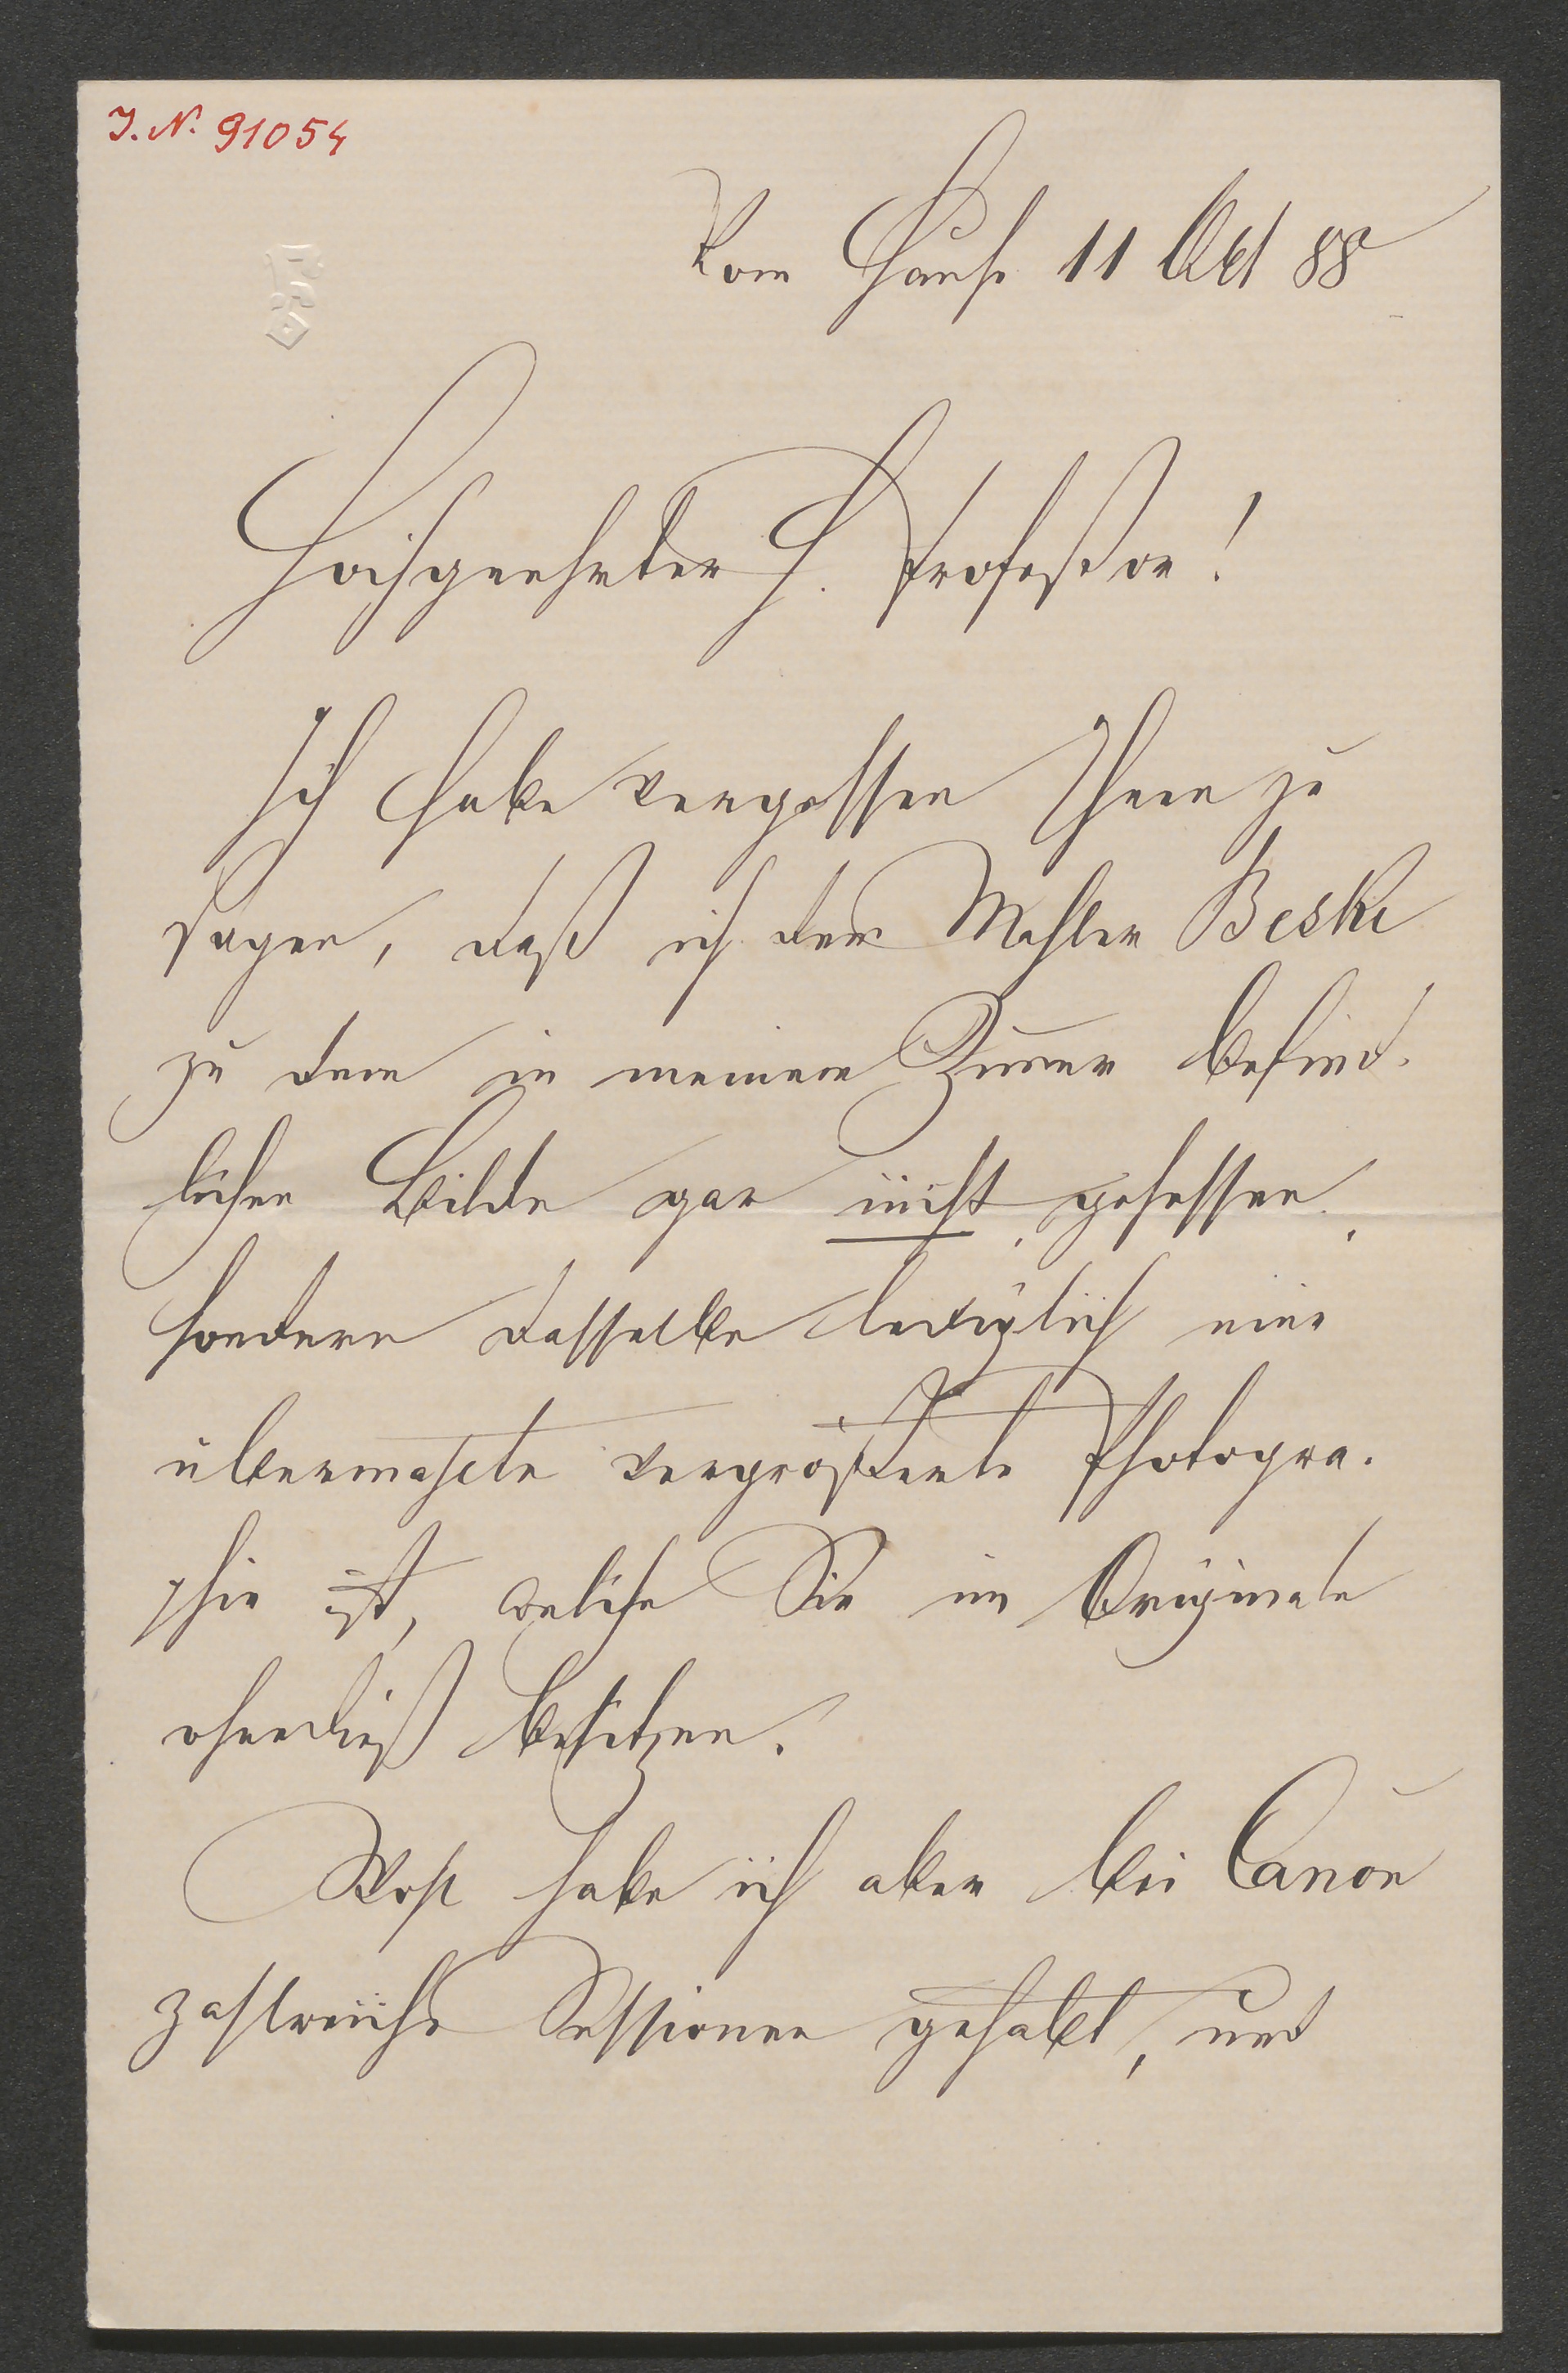 I. N. 91054
Vom Hause 11 Okt 88
Hochgeehrter H. Profeßor!
Ich habe vergessen Ihnen zu
sagen, daß ich dem Mahler Beski
zu dem in meinem Zimer befind-
lichen Bilde gar nicht gesessen,
sondern dasselbe lediglich eine
übermahlte vergrößerte Photogra-
phie ist, welche Sie im Originale
ohnedieß besitzen.
Wohl habe ich aber bei Canon
zahlreiche Sessionen gehabt, und